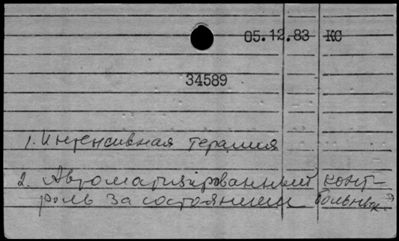 05.12.83 КС
34589
1. Интенсивная терапия
2. Автоматизированный конт-
роль за состоянием больных